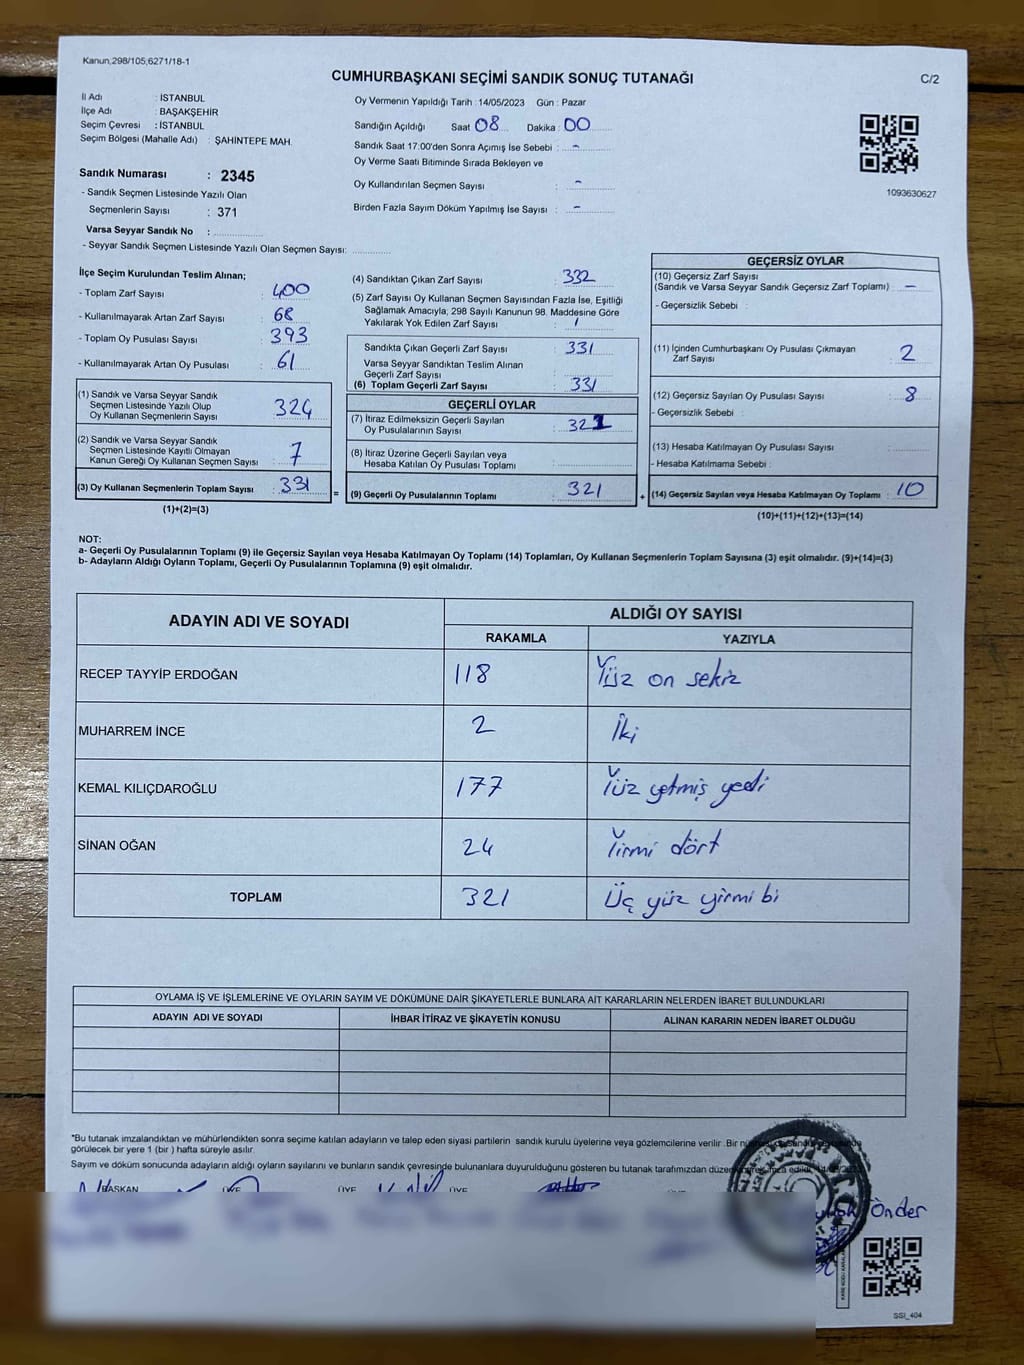 Kanun,298/105,6271/18-1
CUMHURBAŞKANI SEÇİMİ SANDIK SONUÇ TUTANAĞI
C/2
İl Adı : İSTANBUL
İlçe Adı : BAŞAKŞEHİR
Seçim Çevresi : İSTANBUL
Seçim Bölgesi (Mahalle Adı) : ŞAHİNTEPE MAH.
Sandık Numarası : 2345
- Sandık Seçmen Listesinde Yazılı Olan
Seçmenlerin Sayısı : 371
Varsa Seyyar Sandık No :
- Seyyar Sandık Seçmen Listesinde Yazılı Olan Seçmen Sayısı:
Oy Vermenin Yapıldığı Tarih : 14/05/2023 Gün : Pazar
Sandığın Açıldığı Saat 08 Dakika : 00
Sandık Saat 17:00'den Sonra Açımış İse Sebebi : -
Oy Verme Saati Bitiminde Sırada Bekleyen ve
Oy Kullandırılan Seçmen Sayısı : -
Birden Fazla Sayım Döküm Yapılmış İse Sayısı : -
1093630627
İlçe Seçim Kurulundan Teslim Alınan;
- Toplam Zarf Sayısı : 400
- Kullanılmayarak Artan Zarf Sayısı : 68
- Toplam Oy Pusulası Sayısı : 393
- Kullanılmayarak Artan Oy Pusulası : 61
(1) Sandık ve Varsa Seyyar Sandık
Seçmen Listesinde Yazılı Olup
Oy Kullanan Seçmenlerin Sayısı : 324
(2) Sandık ve Varsa Seyyar Sandık
Seçmen Listesinde Kayıtlı Olmayan
Kanun Gereği Oy Kullanan Seçmen Sayısı : 7
(3) Oy Kullanan Seçmenlerin Toplam Sayısı : 331
(1)+(2)=(3)
=
(4) Sandıktan Çıkan Zarf Sayısı : 332
(5) Zarf Sayısı Oy Kullanan Seçmen Sayısından Fazla İse, Eşitliği
Sağlamak Amacıyla, 298 Sayılı Kanunun 98. Maddesine Göre
Yakılarak Yok Edilen Zarf Sayısı : 1
Sandıkta Çıkan Geçerli Zarf Sayısı : 331
Varsa Seyyar Sandıktan Teslim Alınan
Geçerli Zarf Sayısı :
(6) Toplam Geçerli Zarf Sayısı : 331
GEÇERLİ OYLAR
(7) İtiraz Edilmeksizin Geçerli Sayılan
Oy Pusulalarının Sayısı : 321
(8) İtiraz Üzerine Geçerli Sayılan veya
Hesaba Katılan Oy Pusulası Toplamı :
(9) Geçerli Oy Pusulalarının Toplamı : 321
+
GEÇERSİZ OYLAR
(10) Geçersiz Zarf Sayısı
(Sandık ve Varsa Seyyar Sandık Geçersiz Zarf Toplamı) : -
- Geçersizlik Sebebi :
(11) İçinden Cumhurbaşkanı Oy Pusulası Çıkmayan
Zarf Sayısı : 2
(12) Geçersiz Sayılan Oy Pusulası Sayısı : 8
- Geçersizlik Sebebi :
(13) Hesaba Katılmayan Oy Pusulası Sayısı :
- Hesaba Katılmama Sebebi :
(14) Geçersiz Sayılan veya Hesaba Katılmayan Oy Toplamı : 10
(10)+(11)+(12)+(13)=(14)
NOT:
a- Geçerli Oy Pusulalarının Toplamı (9) ile Geçersiz Sayılan veya Hesaba Katılmayan Oy Toplamı (14) Toplamları, Oy Kullanan Seçmenlerin Toplam Sayısına (3) eşit olmalıdır. (9)+(14)=(3)
b- Adayların Aldığı Oyların Toplamı, Geçerli Oy Pusulalarının Toplamına (9) eşit olmalıdır.
ADAYIN ADI VE SOYADI
ALDIĞI OY SAYISI
RAKAMLA YAZIYLA
RECEP TAYYİP ERDOĞAN 118 Yüz on sekiz
MUHARREM İNCE 2 İki
KEMAL KILIÇDAROĞLU 177 Yüz yetmiş yedi
SİNAN OĞAN 24 Yirmi dört
TOPLAM 321 Üç yüz yirmi bi
OYLAMA İŞ VE İŞLEMLERİNE VE OYLARIN SAYIM VE DÖKÜMÜNE DAİR ŞİKAYETLERLE BUNLARA AİT KARARLARIN NELERDEN İBARET BULUNDUKLARI
ADAYIN ADI VE SOYADI İHBAR İTİRAZ VE ŞİKAYETİN KONUSU ALINAN KARARIN NEDEN İBARET OLDUĞU
"Bu tutanak imzalandıktan ve mühürlendikten sonra seçime katılan adayların ve talep eden siyasi partilerin sandık kurulu üyelerine veya gözlemcilerine verilir. Bir
görülecek bir yere 1 (bir ) hafta süreyle asılır.
Sayım ve döküm sonucunda adayların aldığı oyların sayılarını ve bunların sandık çevresinde bulunanlara duyurulduğunu gösteren bu tutanak tarafımızdan
BAŞKAN ÜYE ÜYE ÜYE
Önder
SSİ_404